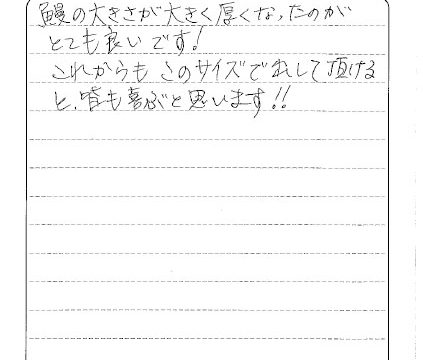 鰻の大きさが大きく厚くなったのが
とても良いです!
これからもこのサイズで出して頂ける
と、皆も喜ぶと思います!!